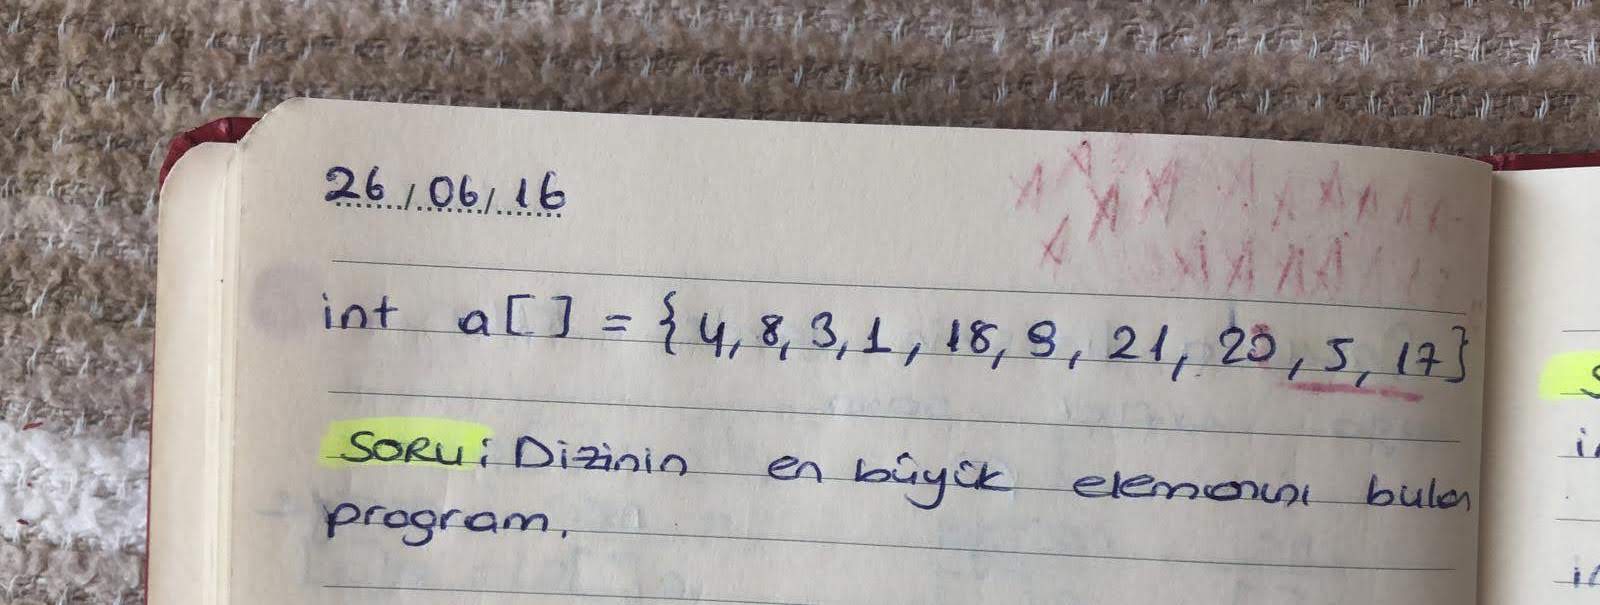 26/06/16
int a[] = {4, 8, 3, 1, 18, 9, 21, 20, 5, 17}
SORU: Dizinin en büyük elemanını bulan
program.
S
i
i